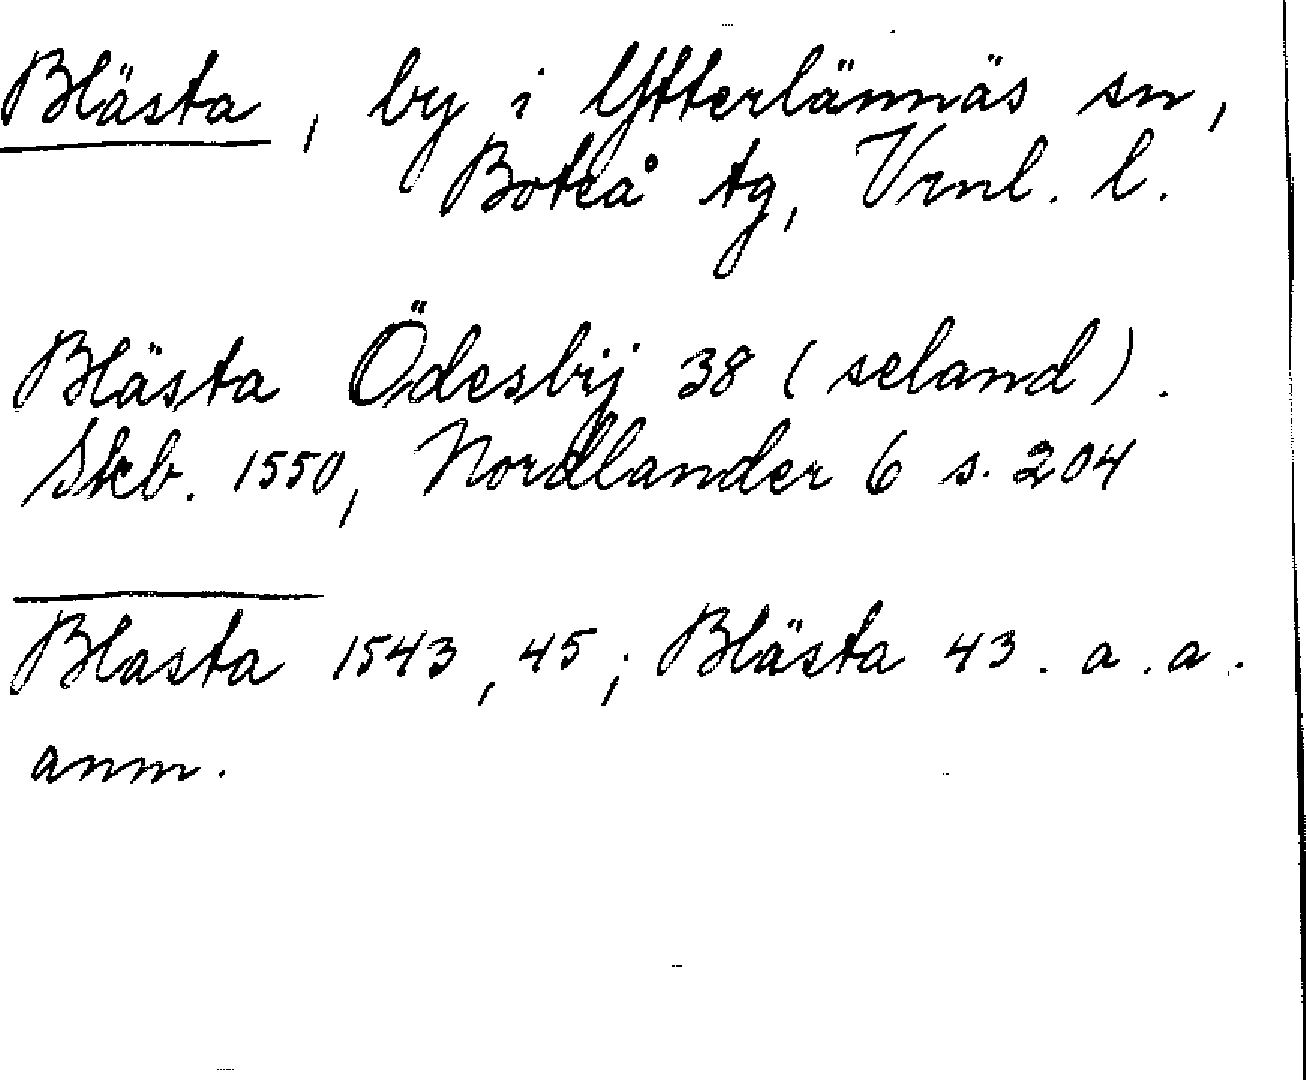 Blästa, by i Ytterlännäs sn,
Boteå tg, Vrnl. l.
Blästa Ödesbij 38 (seland).
Skb. 1550, Nordlander 6 s. 204
Blasta 1543, 45; Blästa 43. a.a.
anm.